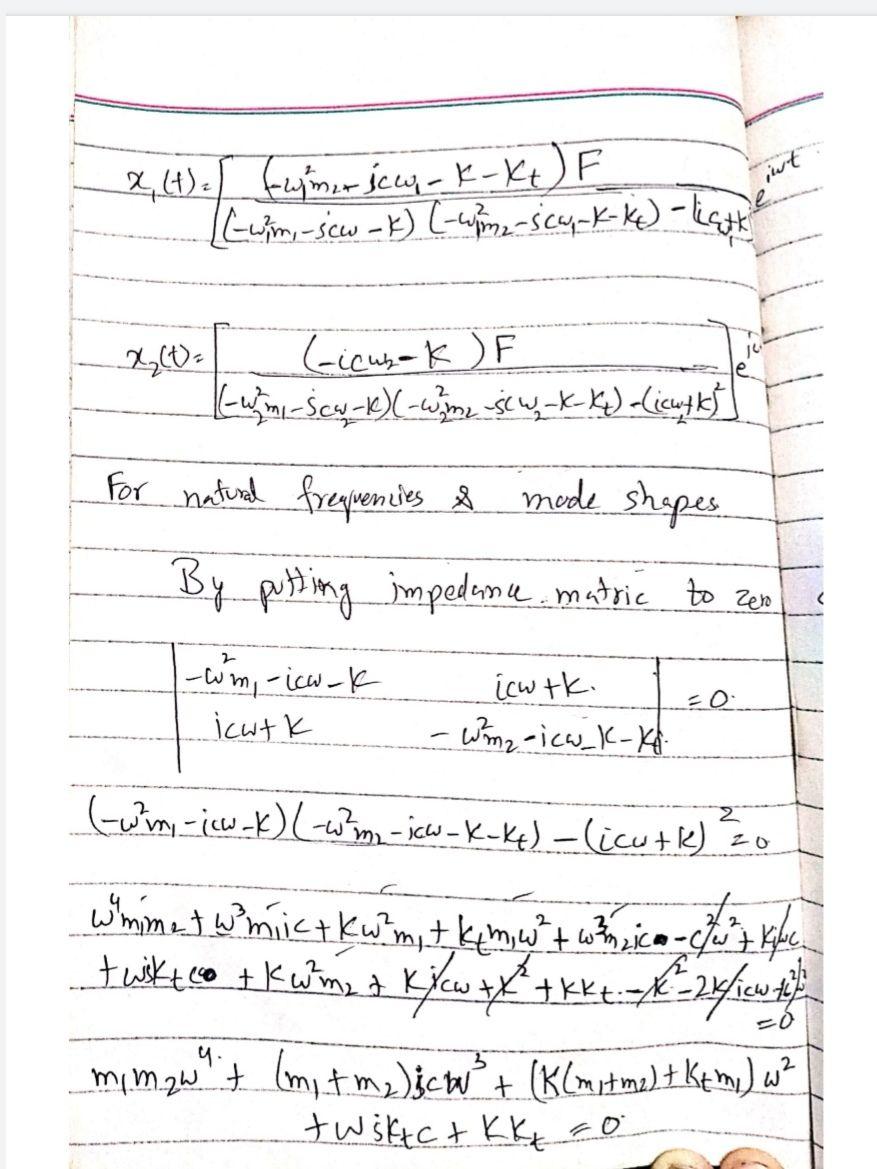 x₁(t) = [ (-ω₁²m₂ - icω₁ - K - Kt) F
[(-ω₁²m₁ - icω - K) (-ω₁²m₂ - icω₁ - K - Kt) - (icω₁ + k e^iωt
x₂(t) = [ (-icω₂ - K) F ] e^iω
[(-ω₂²m₁ - icω₂ - K)(-ω₂²m₂ - icω₂ - K - Kt) - (icω₂ + k)²]
For natural frequencies & mode shapes
By putting impedance matric to zero
| -ω²m₁ - icω - K   icω + K. | = 0.
| icω + K   - ω²m₂ - icω - K - Kt. |
(-ω²m₁ - icω - K)(-ω²m₂ - icω - K - Kt) - (icω + K)² = 0
ω⁴m₁m₂ + ω³m₁ic + Kω²m₁ + Ktm₁ω² + ω³m₂ic - c²ω² + Kiωc
+ ωiKtc + Kω²m₂ + Kicω + K² + KKt - K² - 2Kicω + c²ω²
= 0
m₁m₂ω⁴ + (m₁ + m₂)icω³ + (K(m₁+m₂) + Ktm₁) ω²
+ ωiKtc + KKt = 0